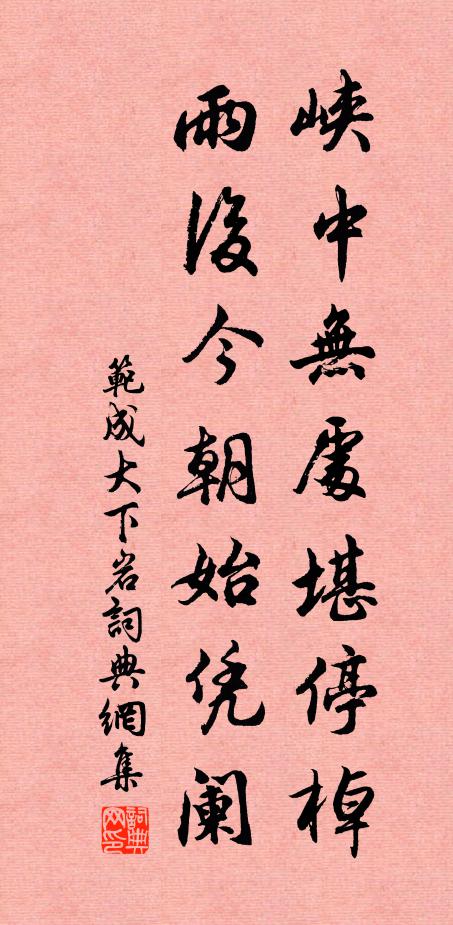 峽中無處堪停棹
雨後今朝始凭闌
範成大下岩詞典網集
詞典网印